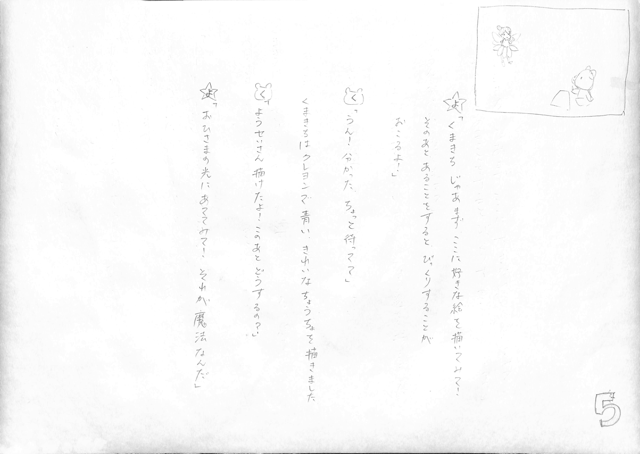 よ「くまきち じゃあまず ここに 好きな絵を描いてみて！
そのあと あることをすると びっくりすることが
おこるよ！」
く「うん！分かった ちょっと待ってて」
くまきちはクレヨンで 青い きれいな ちょうちょを 描きました
く「ようせいさん 描けたよ！このあと どうするの？」
よ「おひさまの光に あててみて！それが 魔法なんだ」
5